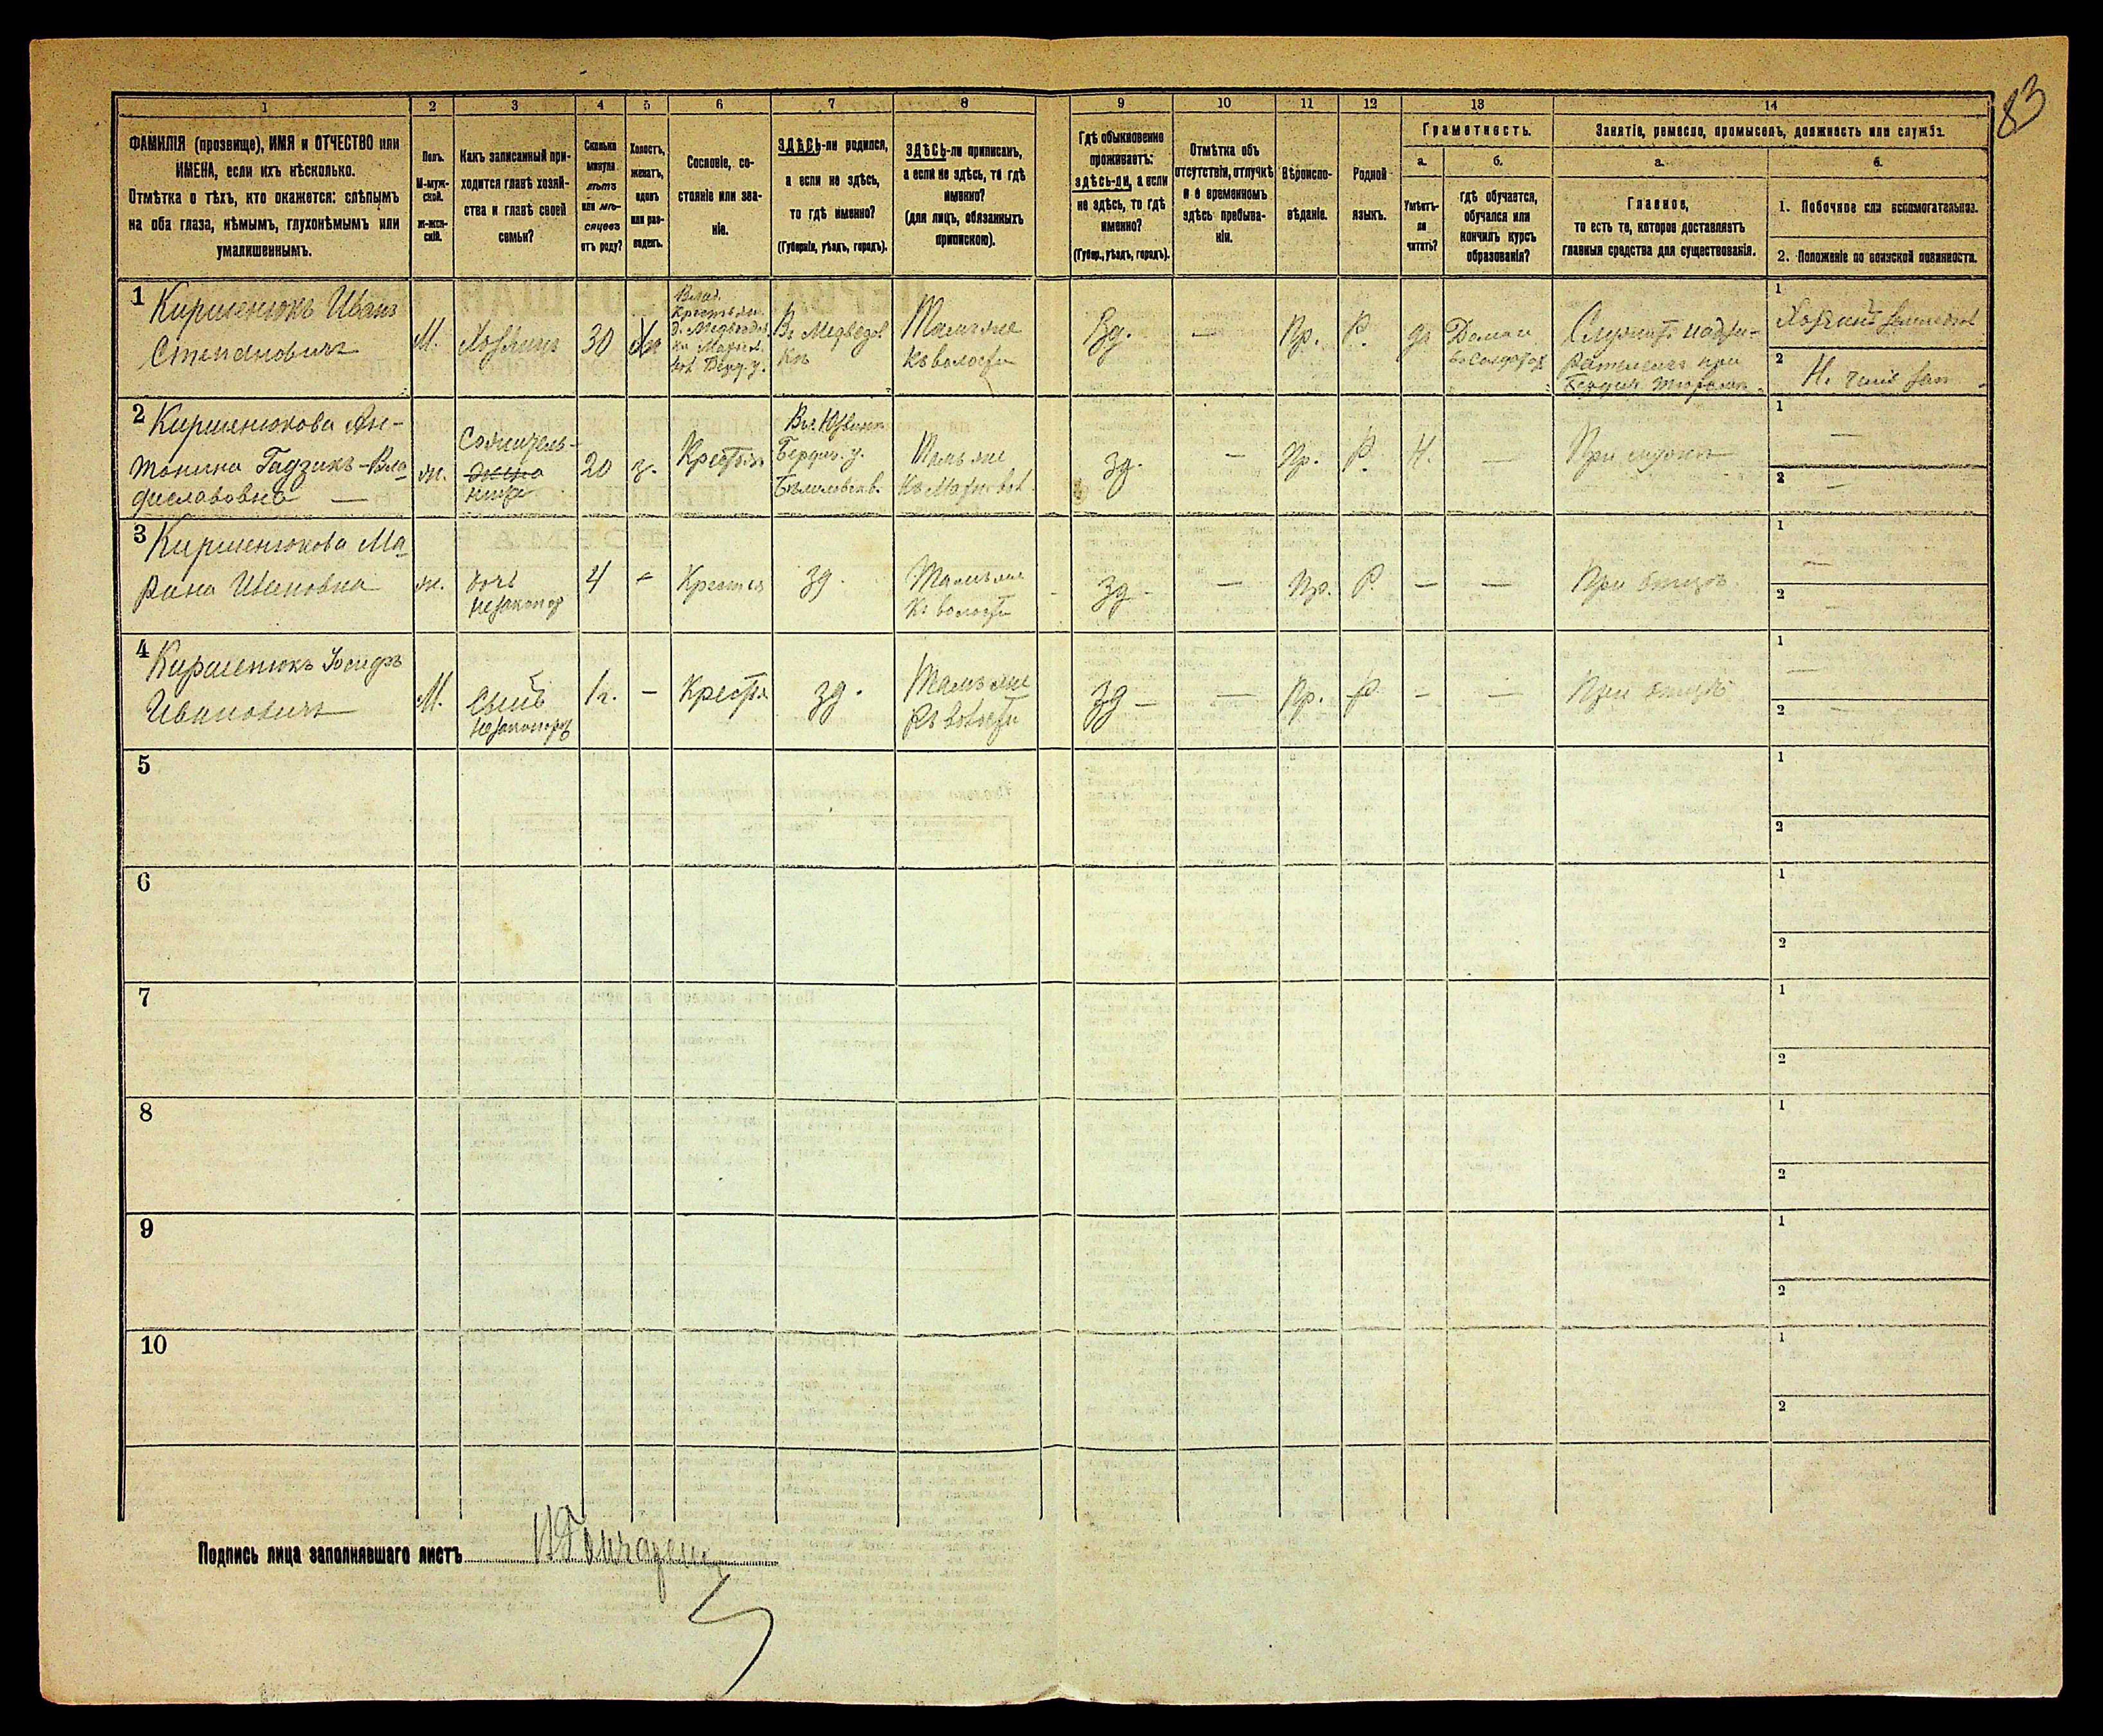 83
1 2 3 4 5 6 7 8 9 10 11 12 13 14
ФАМИЛІЯ (прозвище), ИМЯ и ОТЧЕСТВО или
ИМЕНА, если ихъ нѣсколько.
Отмѣтка о тѣхъ, кто окажется: слѣпымъ
на оба глаза, нѣмымъ, глухонѣмымъ или
умалишеннымъ.
Полъ.
М-муж-
ской.
Ж-жен-
скій.
Какъ записанный при-
ходится главѣ хозяй-
ства и главѣ своей
семьи?
Сколько
минуло
лѣтъ
или мѣ-
сяцевъ
отъ роду?
Холостъ,
женатъ,
вдовъ
или раз-
веденъ.
Сословіе, со-
стояніе или зва-
ніе.
ЗДѢСЬ-ли родился,
а если не здѣсь,
то гдѣ именно?
(Губернія, уѣздъ, городъ).
ЗДѢСЬ-ли приписанъ,
а если не здѣсь, то гдѣ
именно?
(для лицъ, обязанныхъ
припискою).
Гдѣ обыкновенно
проживаетъ:
здѣсь-ли, а если
не здѣсь, то гдѣ
именно?
(Губер., уѣздъ, городъ).
Отмѣтка объ
отсутствіи, отлучкѣ
и о временномъ
здѣсь пребыва-
ніи.
Вѣроиспо-
вѣданіе.
Родной
языкъ.
Грамотность.
а.
Умѣетъ-
ли
читать?
б.
гдѣ обучается,
обучался или
кончилъ курсъ
образованія?
Занятіе, ремесло, промыселъ, должность или служба.
а.
Главное,
то есть то, которое доставляетъ
главныя средства для существованія.
б.
1. Побочное или вспомогательное.
2. Положеніе по воинской повинности.
1 Киршенюкъ Иванъ
Степановичъ
М.
Хозяинъ
30
Въ Медведов
кѣ
Тамъ же
къ волости
Зд.
—
Пр.
Р.
да
Дома и
Служитъ надзи-
рателемъ при
1
2
2 Киршенюкова Ан-
тонина Гадзикъ-Вла
диславовна —
ж.
Сожитель-
жена
ница
20
з.
Крестьян
Бердич. у.
Тамъ же
зд.
—
Пр.
Р.
Н.
—
При мужѣ
1 —
2 —
3 Киршенюкова Ма
рина Ивановна
ж.
дочь
незаконор
4
-
Крестьян
зд.
Тамъ же
къ волости
зд -
—
Пр.
Р.
—
—
При отцѣ
1 —
2 —
4 Киршенюкъ Іосифъ
Ивановичъ
М.
Сынъ
незаконорж
1 г.
-
Крестьян
зд.
Тамъ же
къ волости
зд —
—
Пр.
Р.
—
—
При отцѣ
1 —
2 —
5
1
2
6
1
2
7
1
2
8
1
2
9
1
2
10
1
2
Подпись лица заполнявшаго листъ